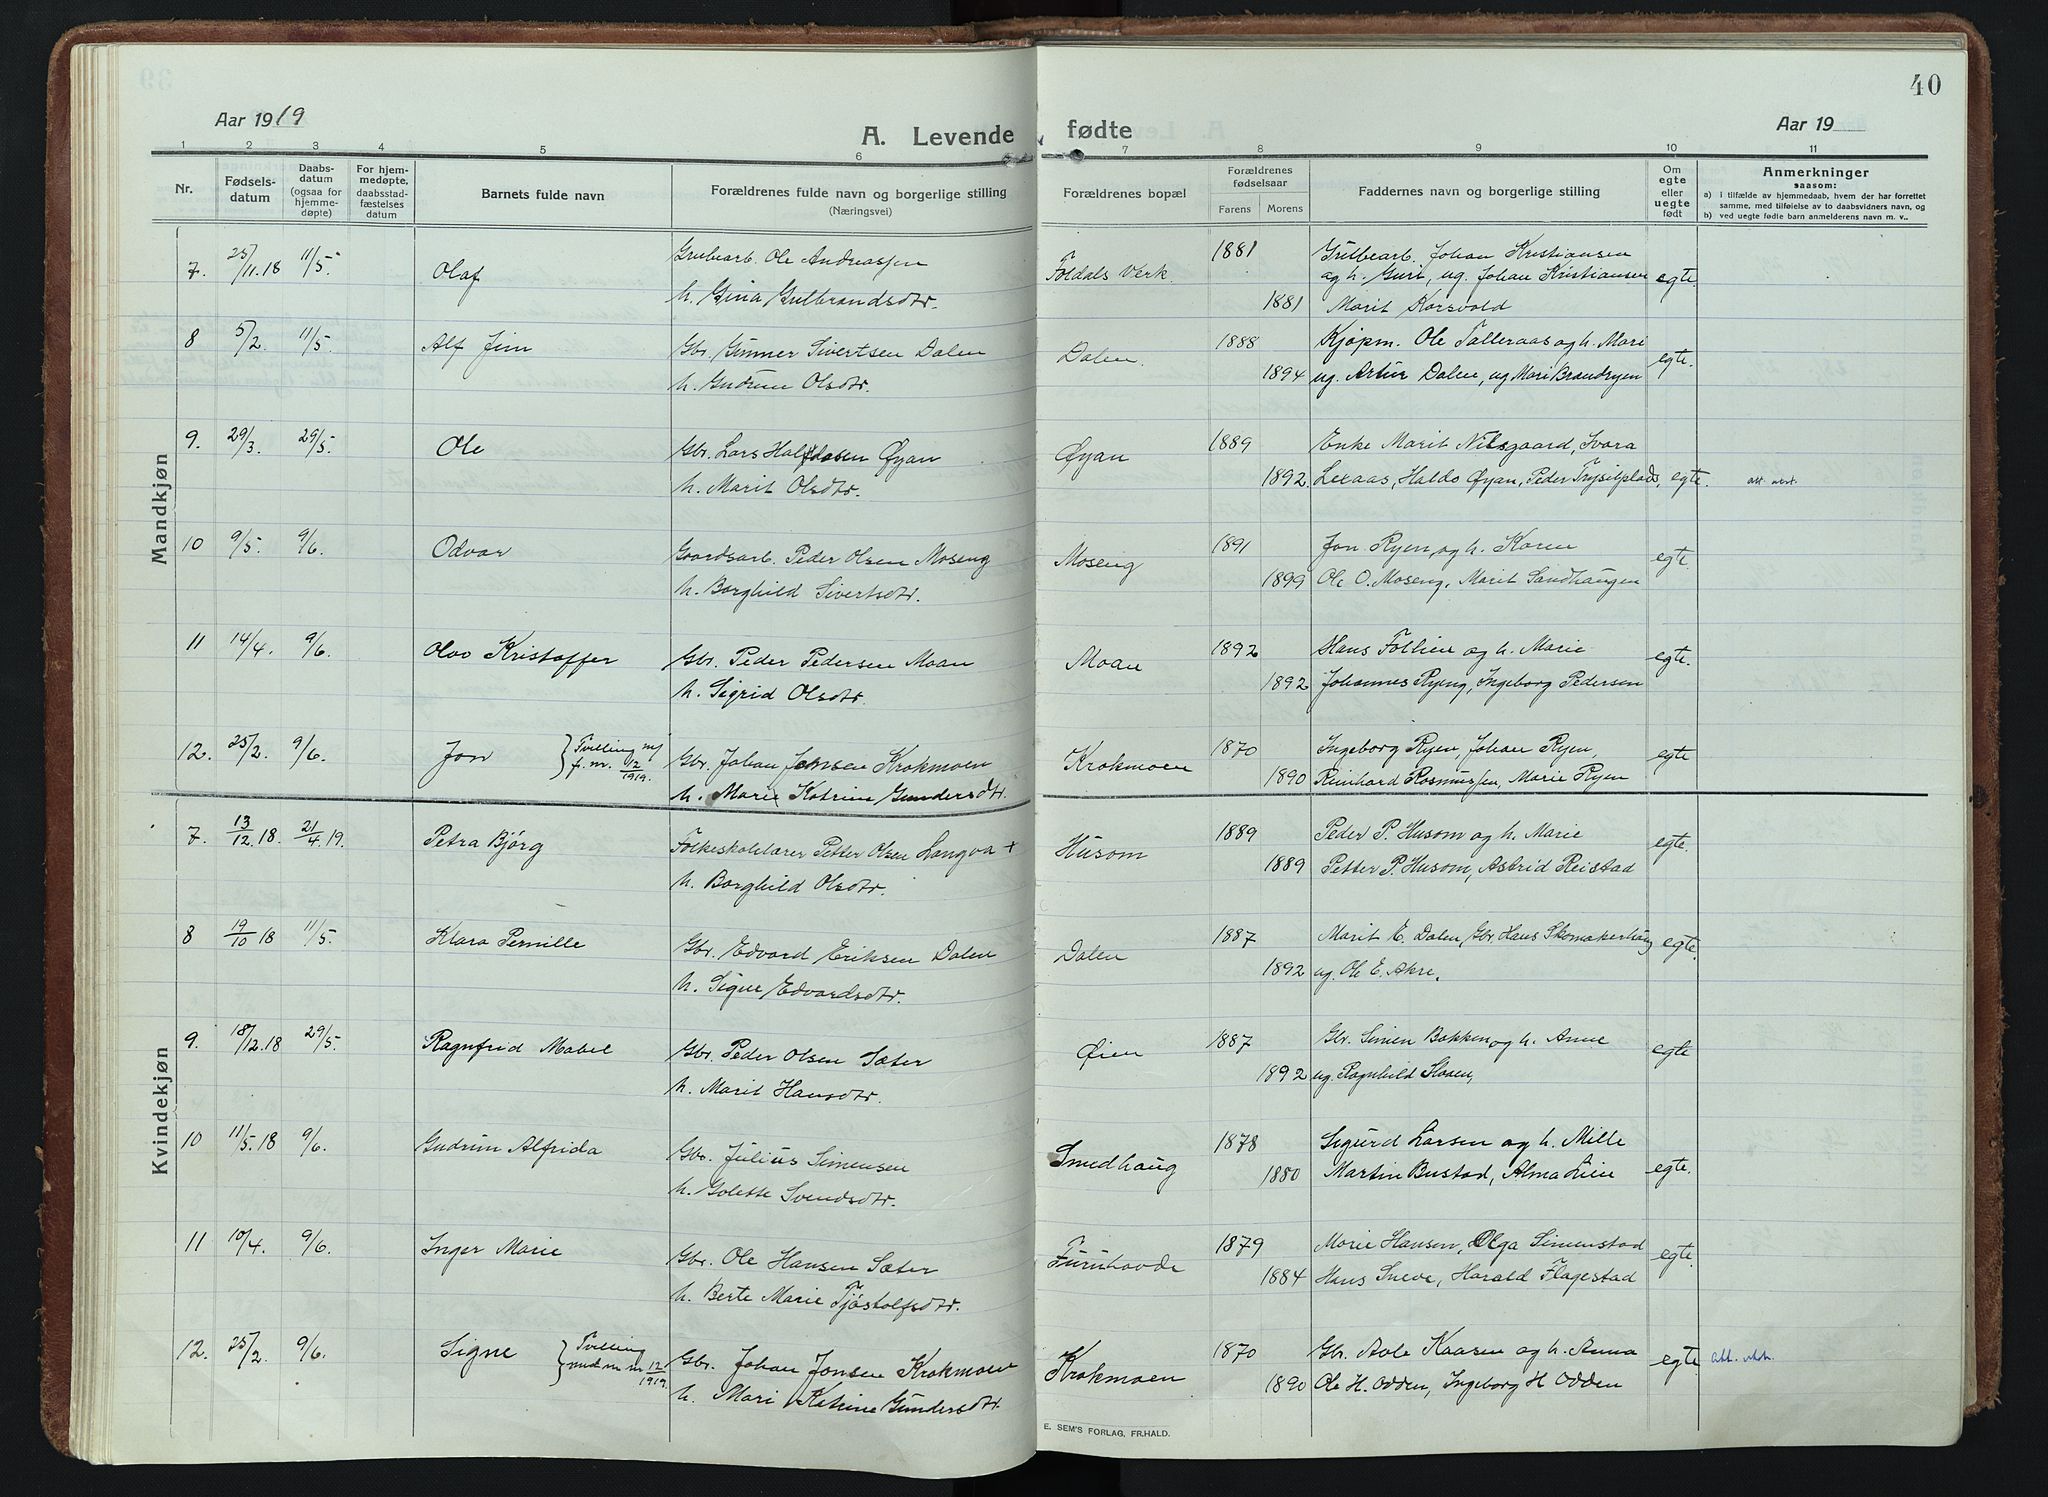 40
Aar 1919
A. Levende fødte
Aar 19
1 2 3 4 5 6 7 8 9 10 11
Nr.
Fødsels-
datum
Daabs-
datum
(ogsaa for
hjemme-
døpte)
For hjem-
medøpte,
daabsstad-
fæstelses
datum
Barnets fulde navn
Forældrenes fulde navn og borgerlige stilling
(Næringsvei)
Forældrenes bopæl
Forældrenes
fødselsaar
Farens Morens
Faddernes navn og borgerlige stilling
Om
egte
eller
uegte
født
Anmerkninger
saasom:
a) i tilfælde av hjemmedaab, hvem der har forrettet
samme, med tilføielse av to daabsvidners navn, og
b) ved uegte fødte barn anmelderens navn m. v..
Mandkjøn
7. 25/11.18 11/5. Olaf Grubearb. Ole Andreassen Foldals Verk 1881 Grubearb. Johan Kristiansen
h. Gina Gulbrandsdtr. 1881 og h. Guri, ug. Johan Kristiansen egte.
Marit Korsvold
8 5/2. 11/5. Alf Jim Gbr. Gunner Sivertsen Dalen Dalen. 1888 Kjøpm. Ole Talleraas og h. Mari
h. Gudrun Olsdtr. 1894 ug. Artur Dalen, ug Mari Brandryen egte.
9. 29/3. 29/5. Ole Gbr. Lars Haldosen Øyan Øyan 1889 Enke Marit Nilsgaard, Ivara
h. Marit Olsdtr. 1892 Lexaas, Haldo Øyan, Peder Trysilplads, egte. att. utst.
10 9/5. 9/6. Odvar Gaardsarb. Peder Olsen Moseng Moseng 1891 Jon Ryen og h. Karen
h. Borghild Sivertsdtr. 1899 Ole O. Moseng, Marit Sandhaugen egte.
11 14/4. 9/6. Olav Kristoffer Gbr. Peder Pedersen Moan Moan 1892 Hans Follien og h. Marie
h. Sigrid Olsdtr. 1892 Johannes Ryeng, Ingeborg Pedersen egte.
12. 25/2. 9/6. Jon } Tvilling m/ f. nr. 12/1919. Gbr. Johan Jonsen Krokmoen Krokmoen 1870 Ingeborg Ryen, Johan Ryen,
h. Marie Katrine Gundersdtr. 1890 Reinhard Rasmussen, Marie Ryen egte
Kvindekjøn
7. 13/12.18. 21/4.19. Petra Bjørg Folkeskolelærer Petter Olsen Langva + Husom 1889 Peder P. Husom og h. Marie
h. Borghild Olsdtr. 1889 Petter P. Husom, Astrid Reistad egte.
8 19/10 18 11/5. Klara Pernille Gbr. Edvard Eriksen Dalen Dalen 1887 Marit E. Dalen, Gbr. Hans Skomakerhaug
h. Signe Edvardsdtr. 1892 ug. Ole E. Akre. egte.
9. 18/12.18 29/5. Ragnfrid Mabel Gbr. Peder Olsen Sæter Øien 1887 Gbr. Simen Bakken og h. Anne
h. Marit Hansdtr. 1892 ug. Ragnhild Sloaen, egte
10 11/5.18 9/6. Gudrun Alfrida Gbr. Julius Simensen Smedhaug 1878 Sigurd Larsen og h. Mille
h. Golette Svendsdtr. 1880 Martin Bustad, Alma Lien egte.
11 10/4. 9/6. Inger Marie Gbr. Ole Hansen Sæter Furuhovde 1879 Marie Hansen, Olga Simenstad
h. Berte Marie Tjøstolfsdtr. 1884 Hans Sneve, Harald Flagestad egte.
12. 25/2. 9/6. Signe } Tvilling med m nr 12/1919. Gbr. Johan Jonsen Krokmoen Krokmoen 1870 Gbr. Aole Kaasen og h. Anna
h. Mari Katrine Gundersdtr. 1890 Ole H. Odden, Ingeborg H Odden egte. att. utst.
E. SEM'S FORLAG, FR.HALD.